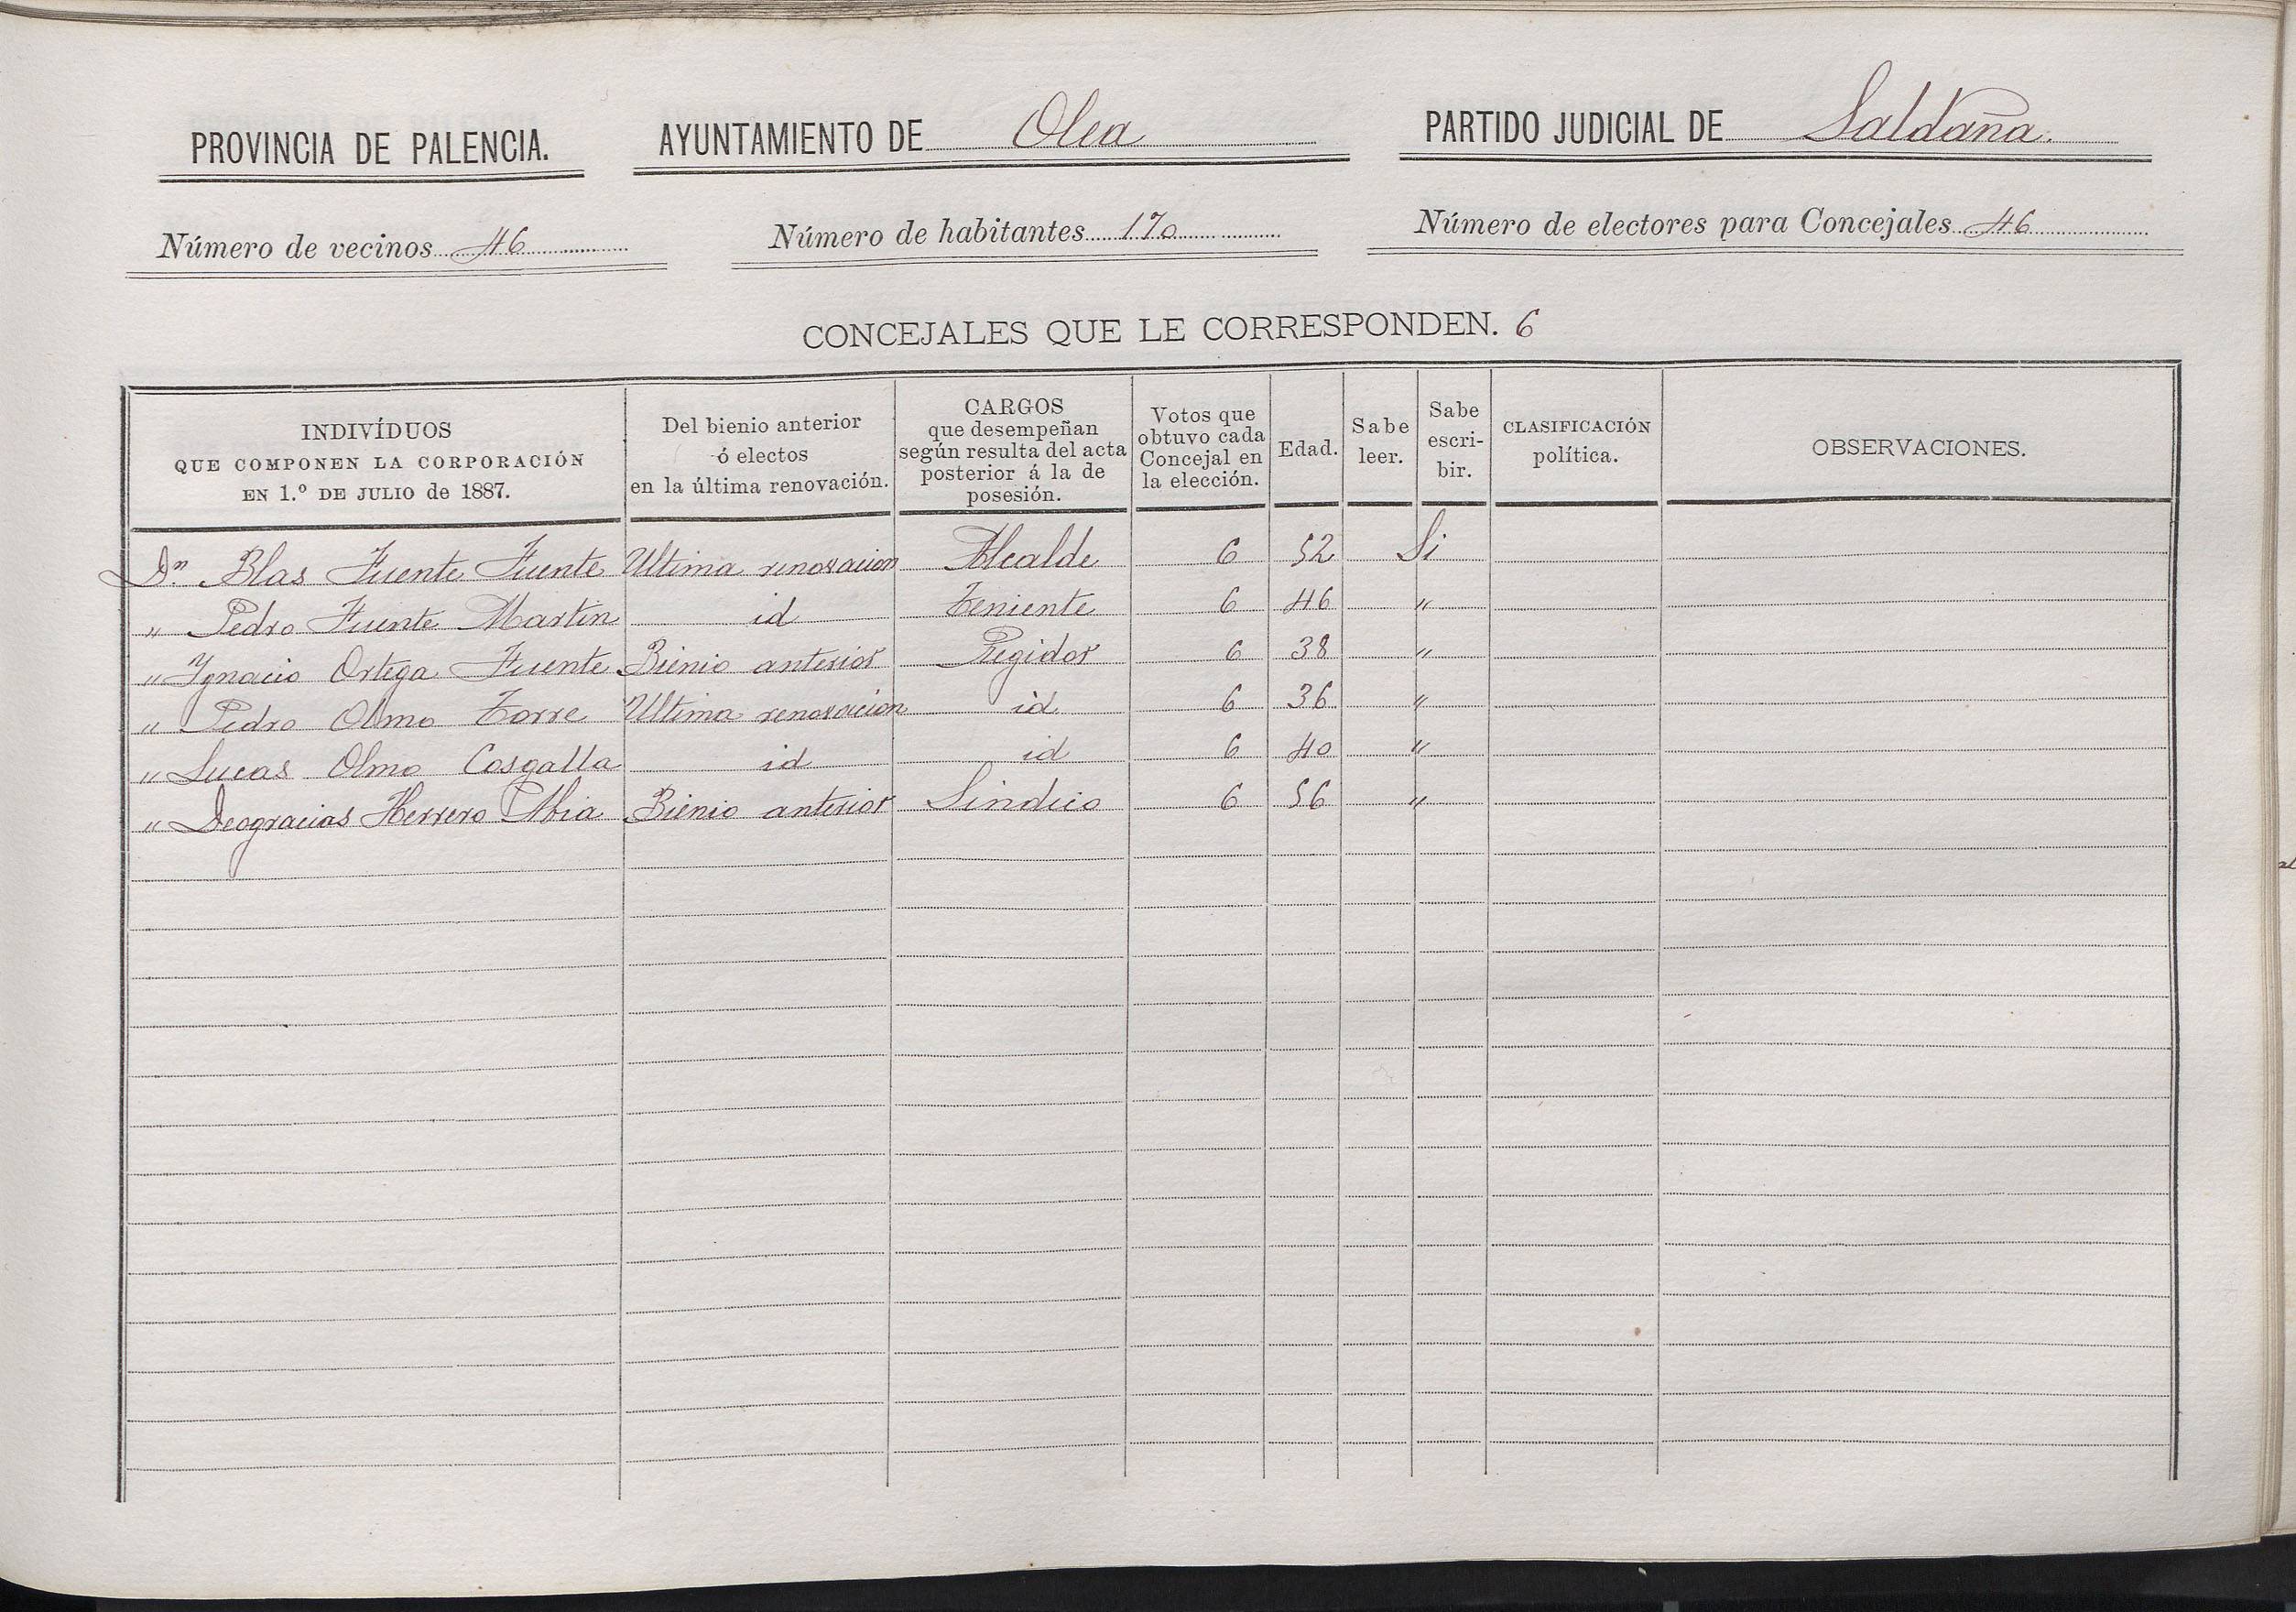 PROVINCIA DE PALENCIA. AYUNTAMIENTO DE Olea PARTIDO JUDICIAL DE Saldaña.
Número de vecinos 46 Número de habitantes 170 Número de electores para Concejales 46
CONCEJALES QUE LE CORRESPONDEN. 6
INDIVÍDUOS
QUE COMPONEN LA CORPORACIÓN
EN 1.º DE JULIO de 1887.
Del bienio anterior
ó electos
en la última renovación.
CARGOS
que desempeñan
según resulta del acta
posterior á la de
posesión.
Votos que
obtuvo cada
Concejal en
la elección.
Edad.
Sabe
leer.
Sabe
escri-
bir.
CLASIFICACIÓN
política.
OBSERVACIONES.
Dn Blas Fuente Fuente Ultima renovacion Alcalde 6 52 Si
" Pedro Fuente Martin id Teniente 6 46 "
" Ygnacio Ortega Fuente Bienio anterior Regidor 6 38 "
" Pedro Olmo Torre Ultima renovacion id 6 36 "
" Lucas Olmo Cosgalla id id 6 40 "
" Deogracias Herrero Abia Bienio anterior Sindico 6 56 "